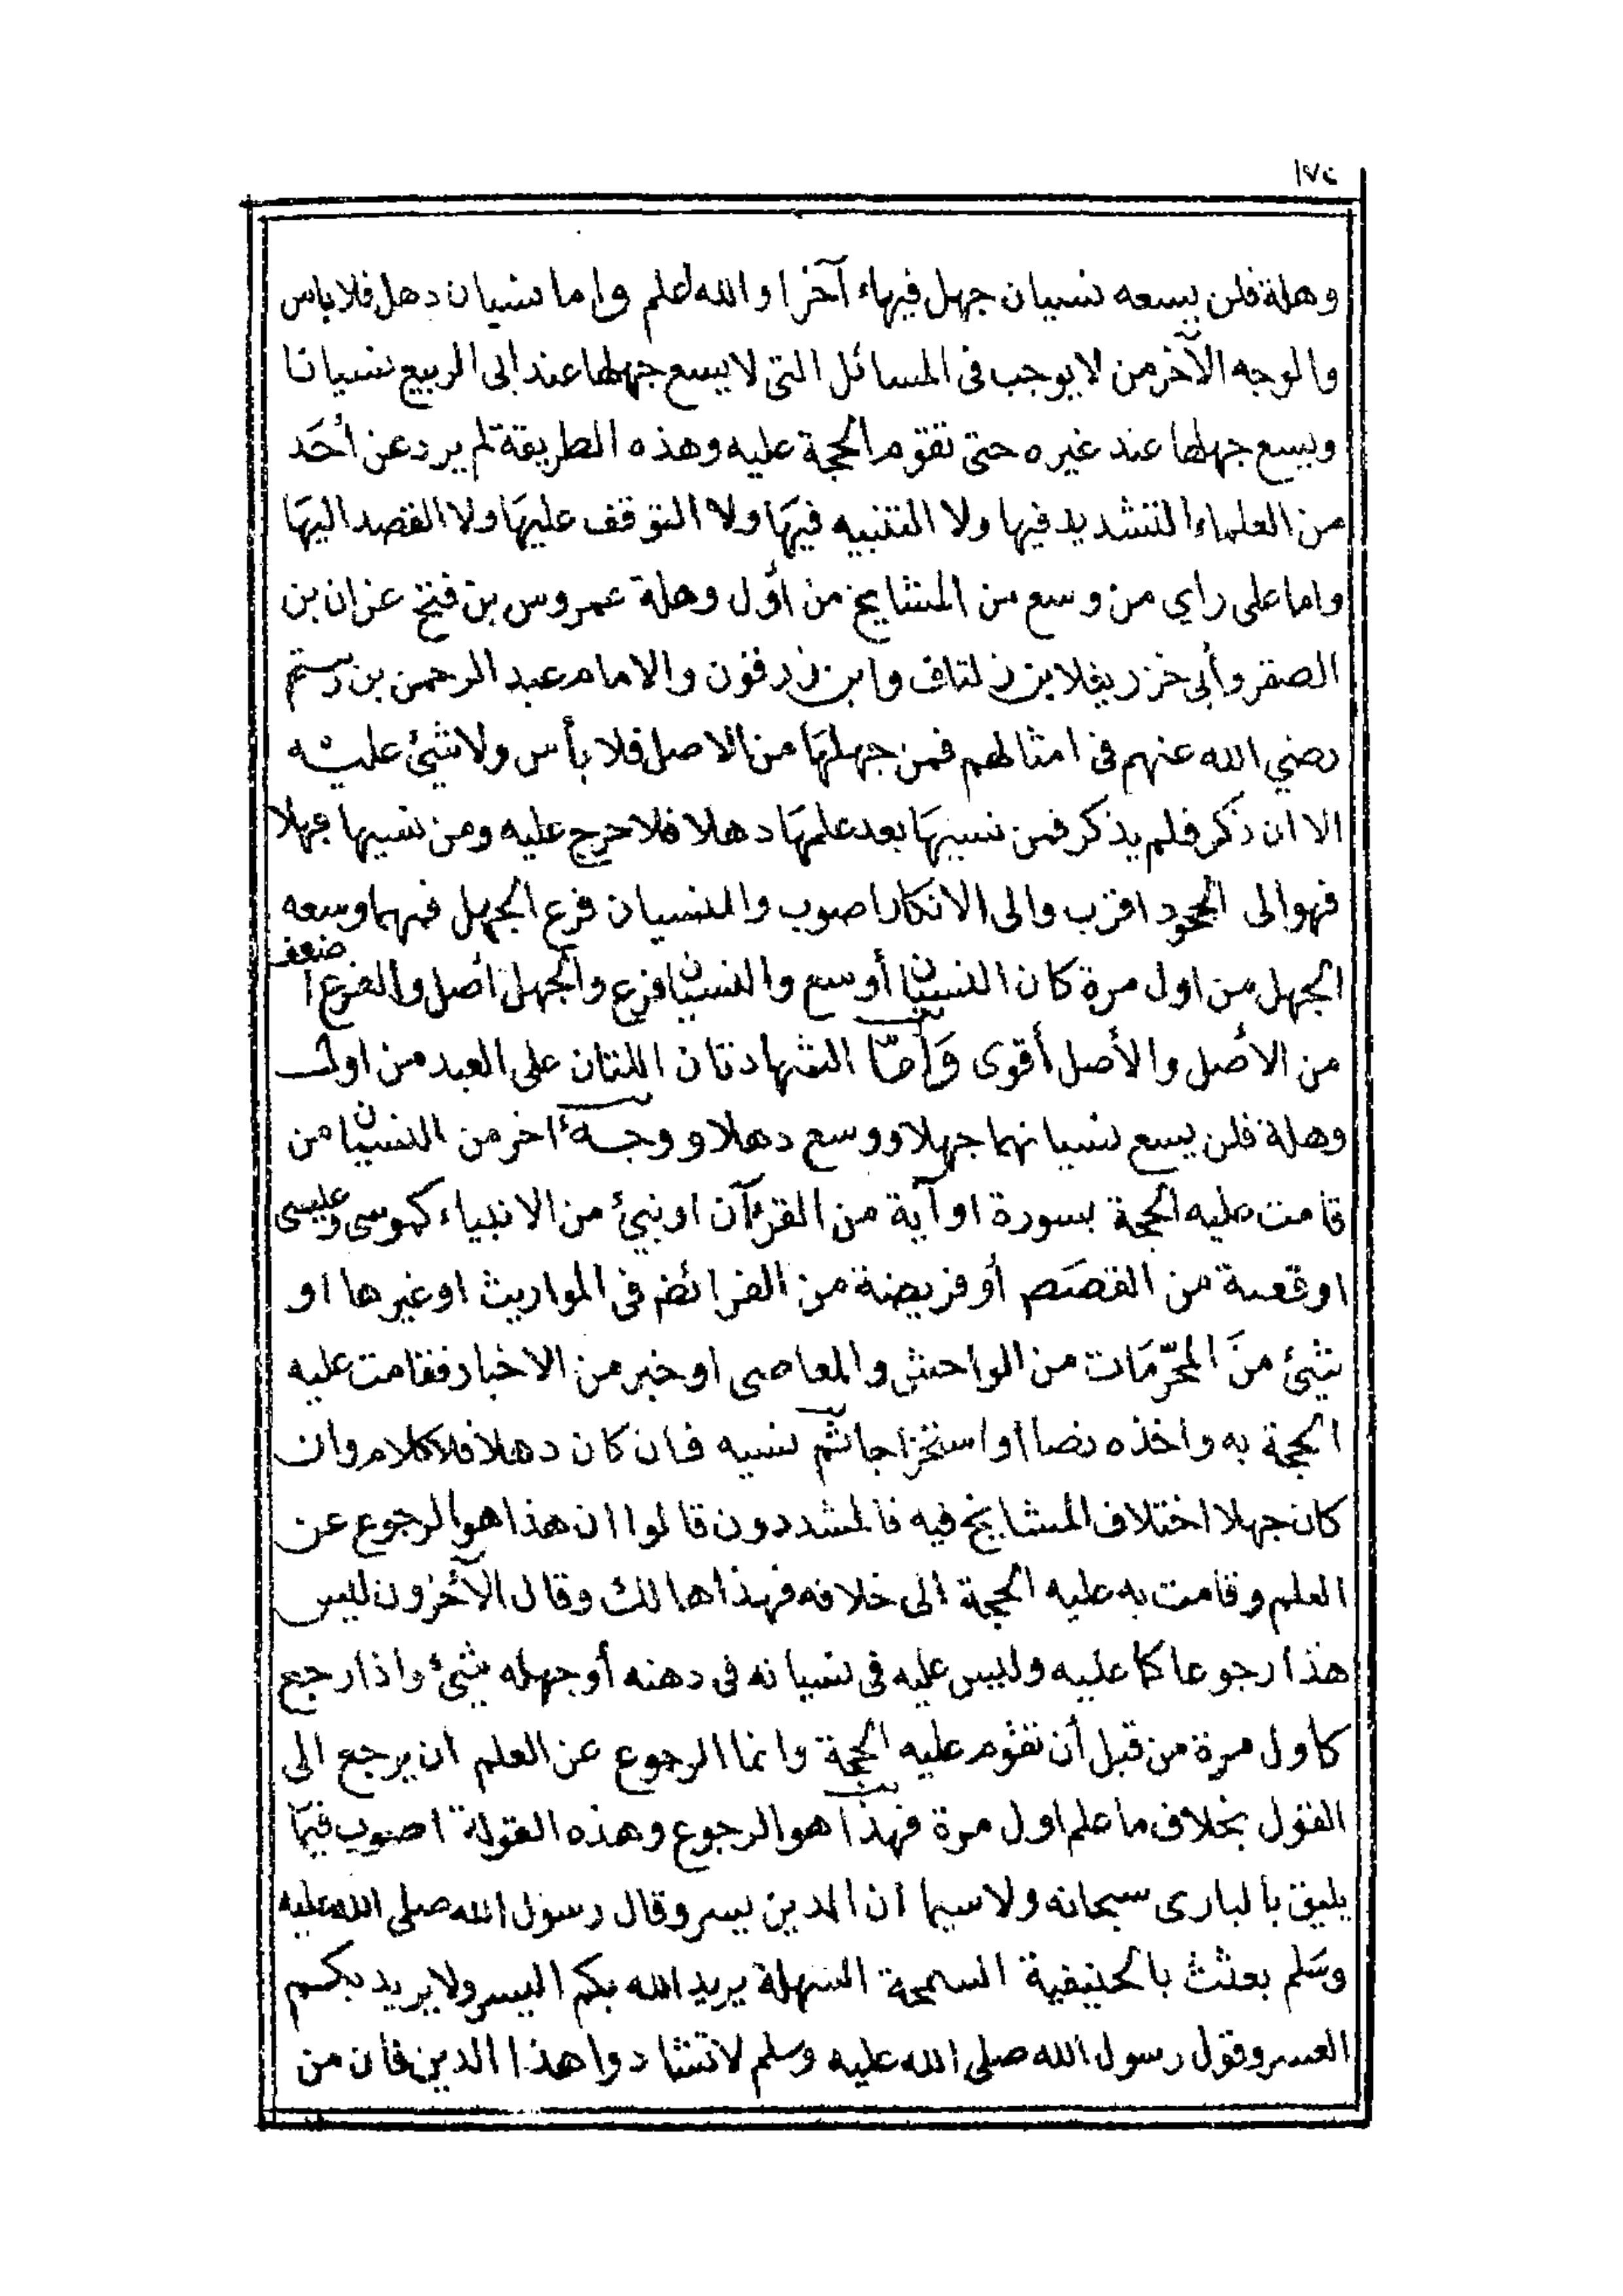 ١٧٤
وهلة فلن يسعه نسيان جهل فيهاء آخرا والله اعلم واما نسيان دهل فلا باس
والوجه الآخر من لا يوجب فى المسائل التى لا يسع جهلها عند ابى الربيع نسيانا
ويسع جهلها عند غيره حتى تقوم الحجة عليه وهذه الطريقة لم يرد عن أحَد
من العلماء التشديد فيها ولا التنبيه فيهَا ولا التوقف عليهَا ولا القصد اليهَا
واما على راي من وسع من المشايخ من اوّل وهلة عمروس بن فتح عزان بن
الصقر وأبى خزر يغلا بن زلتاف وابن زرفون والامام عبد الرحمن بن رستم
رضي الله عنهم فى امثالهم فمن جهلهَا من الاصل فلا بأس ولا شيئ عليه
الا ان ذكر فلم يذكر فمن نسيهَا بعد علمهَا دهلا فلا حرج عليه ومن نسيها جهلا
فهو الى الجحود اقرب والى الانكار اصوب والنسيان فرع الجهل فمهما وسعه
الجهل من اول مرة كان النسيان أوسع والنسيان فرع والجهل أصل والفرع اضعف
من الأصل والأصل أقوى وَأمّا الشهادتان اللتان على العبد من اول
وهلة فلن يسع نسيانهما جهلا ووسع دهلا ووجه اخر من النسيان من
قامت عليه الحجة بسورة او آية من القرءآن او نبيئ من الانبياء كموسى وعيسى
او قصة من القصَص أو فريضة من الفرائض فى المواريث او غيرها او
شيئ منَ المحرّمَات من الواحش والمعاصى او خبر من الاخبار فقامت عليه
الحجة به واخذه نصا أو استخراجا ثم نسيه فان كان دهلا فلا كلام وان
كان جهلا اختلاف المشايخ فيه فالمشددون قالوا ان هذا هو الرجوع عن
العلم وقامت به عليه الحجة الى خلافه فهذا هالك وقال الآخرون ليس
هذا رجوعا كما عليه وليس عليه فى نسيانه فى دهنه أو جهله شيئ واذا رجع
كاول مرة من قبل أن تقوم عليه الحجة وانما الرجوع عن العلم ان يرجع الى
القول بخلاف ما علم اول مرة فهذا هو الرجوع وهذه القولة اصوب فيمَا
يليق بالبارى سبحانه ولا سيما ان الدين يسر وقال رسول الله صلى الله عليه
وسَلم بعثت بالحنيفية السمحة السهلة يريد الله بكم اليسر ولا يريد بكم
العسر وقول رسول الله صلى الله عليه وسلم لا تشادوا هذا الدين فان من